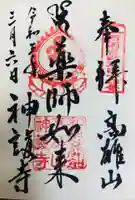 奉拝 高雄山
薬師如来
令和
三月六日 神護寺